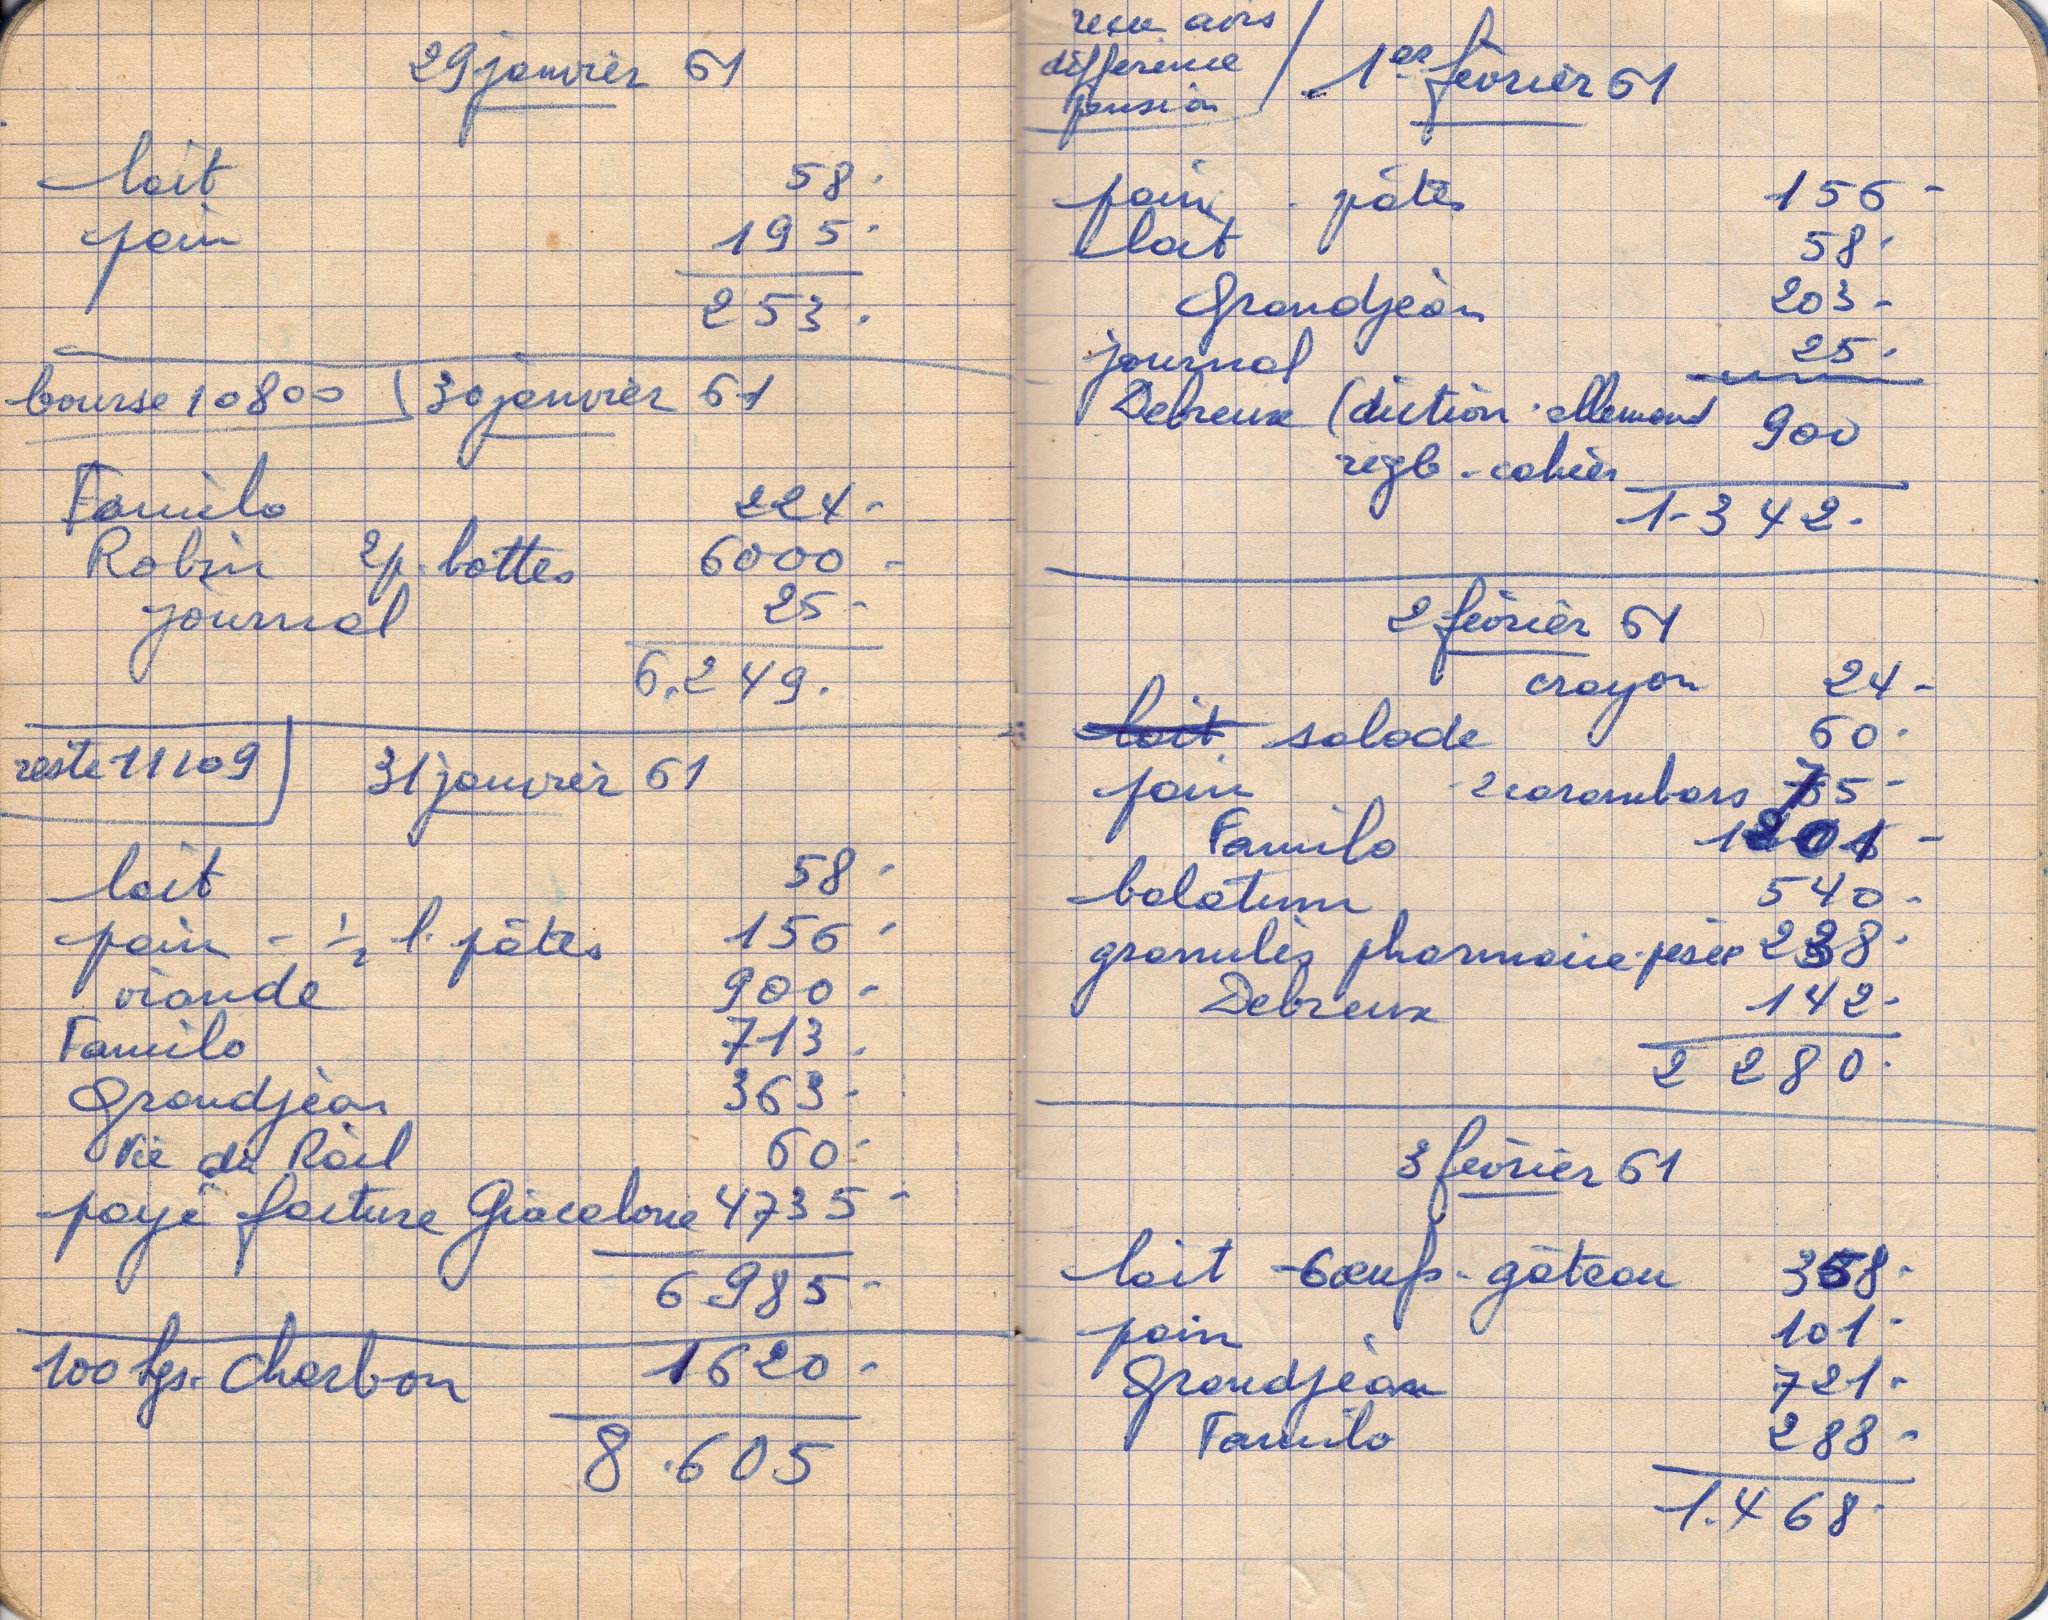 29 janvier 61
lait 58.
pain 195.
253.
bourse 10800
30 janvier 61
Familo 224-
Robin 2p. bottes 6000-
journal 25-
6.249.
reste 11109
31 janvier 61
lait 58-
pain - ½ l. pâtes 156-
viande 900-
Familo 713.
Grandjean 363-
Vie du Rail 60-
payé facture Giacolone 4735-
6985-
100 kgs. Charbon 1620-
8.605
recu avis
différence
pension
1er février 61
pain - pâtes 156-
lait 58-
Grandjean 203-
journal 25.
Debreux (diction. allemand 900
règle - cahier
1.342.
2 février 61
crayon 24-
lait salade 60.
pain - 2 carambars 75-
Familo 1201-
balatum 540-
granulés pharmacie-pesée 238-
Debreux 142-
2280.
3 février 61
lait - 6 œufs - gâteau 358-
pain 101-
Grandjean 721-
Familo 288-
1.468.